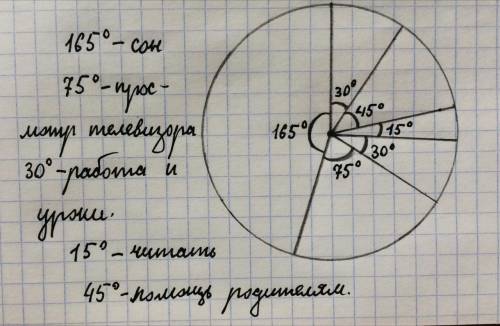 165° - сон
75° - прос-
мотр телевизора
30° - работа и
уроки.
15° - читать
45° - помощь родителям.
30°
45°
15°
30°
75°
165°